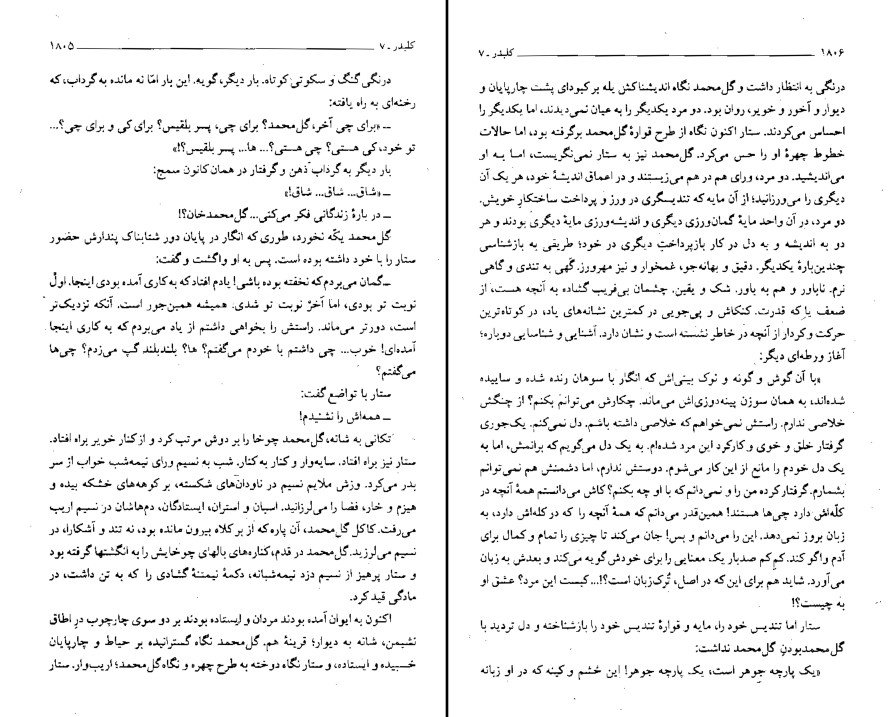 کلیدر ـ ۷ ــــــــــــــــــــ ۱۸۰۵
درنگی گنگ و سکوتی کوتاه. بار دیگر، گویه. این بار امّا نه مانده به گرداب، که
رخنه‌ای به راه یافته:
ــ «برای چی آخر، گل‌محمد؟ برای چی، پسر بلقیس؟ برای کی و برای چی؟...
تو خود، کی هستی؟ چی هستی؟... ها... پسر بلقیس؟!»
بار دیگر به گردابِ ذهن و گرفتار در همان کانون سمج:
ــ «شاق... شاق... شاق!»
ــ در بارهٔ زندگانی فکر می‌کنی...گل‌محمدخان؟!
گل‌محمد یکّه نخورد، طوری که انگار در پایان دور شتابناک پندارش حضور
ستار را با خود داشته بوده است. پس به او واگشت و گفت:
ــ گمان می‌بردم که نخفته بوده باشی! یادم افتاد که به کاری آمده بودی اینجا. اولْ
نوبت تو بودی، اما آخرْ نوبت تو شدی. همیشه همین‌جور است. آنکه نزدیک‌تر
است، دورتر می‌ماند. راستش را بخواهی داشتم از یاد می‌بردم که به کاری اینجا
آمده‌ای! خوب... چی داشتم با خودم می‌گفتم؟ ها؟ بلندبلند گپ می‌زدم؟ چی‌ها
می‌گفتم؟
ستار با تواضع گفت:
ــ همه‌اش را نشنیدم!
تکانی به شانه، گل‌محمد چوخا را بر دوش مرتب کرد و از کنار خویر براه افتاد.
ستار نیز براه افتاد. سایه‌وار و کنار به کنار. شب به نسیم ورای نیمه‌شب خواب از سر
بدر می‌کرد. وزش ملایم نسیم در ناودان‌های شکسته، بر کوهه‌های خشکه بیده و
هیزم و خار، فضا را می‌لرزانید. اسبان و استران، ایستادگان، دم‌هاشان در نسیم اریب
می‌رفت. کاکل گل‌محمد، آن پاره که از بر کلاه بیرون مانده بود، نه تند و آشکارا، در
نسیم می‌لرزید. گل‌محمد در قدم، کناره‌های بالهای چوخایش را به انگشتها گرفته بود
و ستار پرهیز از نسیم دزد نیمه‌شبانه، دکمهٔ نیمتنهٔ گشادی را که به تن داشت، در
مادگی قید کرد.
اکنون به ایوان آمده بودند مردان و ایستاده بودند بر دو سوی چارچوب درِ اطاق
نشیمن، شانه به دیوار؛ قرینهٔ هم. گل‌محمد نگاه گسترانیده بر حیاط و چارپایان
خسبیده و ایستاده، و ستار نگاه دوخته به طرح چهره و نگاه گل‌محمد؛ اریب‌وار. ستار
۱۸۰۶ ــــــــــــــــــــ کلیدر ـ ۷
درنگی به انتظار داشت و گل‌محمد نگاه اندیشناکش یله بر کبودای پشت چارپایان و
دیوار و آخور و خویر، روان بود. دو مرد یکدیگر را به عیان نمی‌دیدند، اما یکدیگر را
احساس می‌کردند. ستار اکنون نگاه از طرح قوارهٔ گل‌محمد برگرفته بود، اما حالات
خطوط چهرهٔ او را حس می‌کرد. گل‌محمد نیز به ستار نمی‌نگریست، اما به او
می‌اندیشید. دو مرد، ورای هم در هم می‌زیستند و در اعماق اندیشهٔ خود، هر یک آن
دیگری را می‌ورزانید؛ از آن مایه که تندیسگری در ورز و پرداخت ساختکار خویش.
دو مرد، در آن واحد مایهٔ گمان‌ورزی دیگری و اندیشه‌ورزی مایهٔ دیگری بودند و هر
دو به اندیشه و به دل در کار بازپرداختِ دیگری در خود؛ طریقی به بازشناسی
چندین‌بارهٔ یکدیگر. دقیق و بهانه‌جو، غمخوار و نیز مهرورز. گهی به تندی و گاهی
نرم. ناباور و هم به باور. شک و یقین. چشمان بی‌فریب گشاده به آنچه هست، از
ضعف یا که قدرت. کنکاش و پی‌جویی در کمترین نشانه‌های یاد، در کوتاه‌ترین
حرکت و کردار از آنچه در خاطر نشسته است و نشان دارد. آشنایی و شناسایی دوباره؛
آغاز ورطه‌ای دیگر:
«با آن گوش و گونه و نوک بینی‌اش که انگار با سوهان رنده شده و ساییده
شده‌اند، به همان سوزن پینه‌دوزی‌اش می‌ماند. چکارش می‌توانم بکنم؟ از چنگش
خلاصی ندارم. راستش نمی‌خواهم که خلاصی داشته باشم. دل نمی‌کنم. یک‌جوری
گرفتار خلق و خوی و کارکرد این مرد شده‌ام. به یک دل می‌گویم که برانمش، اما به
یک دل خودم را مانع از این کار می‌شوم. دوستش ندارم، اما دشمنش هم نمی‌توانم
بشمارم. گرفتار کرده من را و نمی‌دانم که با او چه بکنم؟ کاش می‌دانستم همهٔ آنچه در
کلّه‌اش دارد چی‌ها هستند! همین‌قدر می‌دانم که همهٔ آنچه را که در کله‌اش دارد، به
زبان بروز نمی‌دهد. این را می‌دانم و بس! جان می‌کند تا چیزی را تمام و کمال برای
آدم واگو کند. کم‌کم صدبار یک معنایی را برای خودش گویه می‌کند و بعدش به زبان
می‌آورد. شاید هم برای این که در اصل، تُرک‌زبان است؟!... کیست این مرد؟ عشق او
به چیست؟!
ستار اما تندیس خود را، مایه و قوارهٔ تندیس خود را بازشناخته و دل تردید با
گل‌محمدبودنِ گل‌محمد نداشت:
«یک پارچه جوهر است، یک پارچه جوهر! این خشم و کینه که در او زبانه